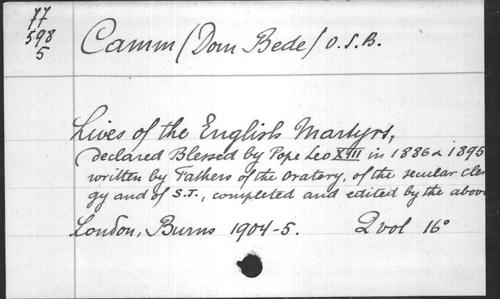 77
598
5
Camm (Dom Bede) O.S.B.
Lives of the English Martyrs,
declared Blessed by Pope Leo XIII in 1886 & 1895
written by Fathers of the Oratory, of the secular cler
gy and of S.J., completed and edited by the above
London, Burns 1904-5. 2 vol 16°